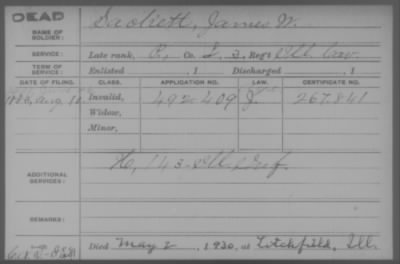 DEAD
NAME OF SOLDIER: James W.
SERVICE: Late rank, Co. I, 3, Reg't Ill. Cav.
TERM OF SERVICE: Enlisted , 1 Discharged , 1
DATE OF FILING. CLASS. APPLICATION NO. LAW. CERTIFICATE NO.
Aug. Invalid, 492.409 J. 267.841
Widow,
Minor,
ADDITIONAL SERVICES: H, 143 Ill. Inf.
REMARKS:
Died May 2, 1930, at Litchfield, Ill.